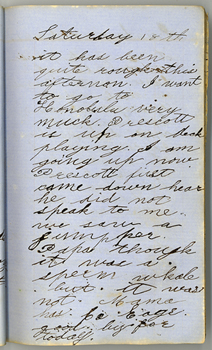 Saturday 18th
it has been
quite rough this
afternon. I want
to go to
Honolulu very
much. Prescott
is up on deck
playing I am
going up now
Prescott just
came down hear
he did not
speak to me.
we saw a
jumpper.
Papa though
it was a
sperm whale
but it was
not. Mama
has
good by for
today.